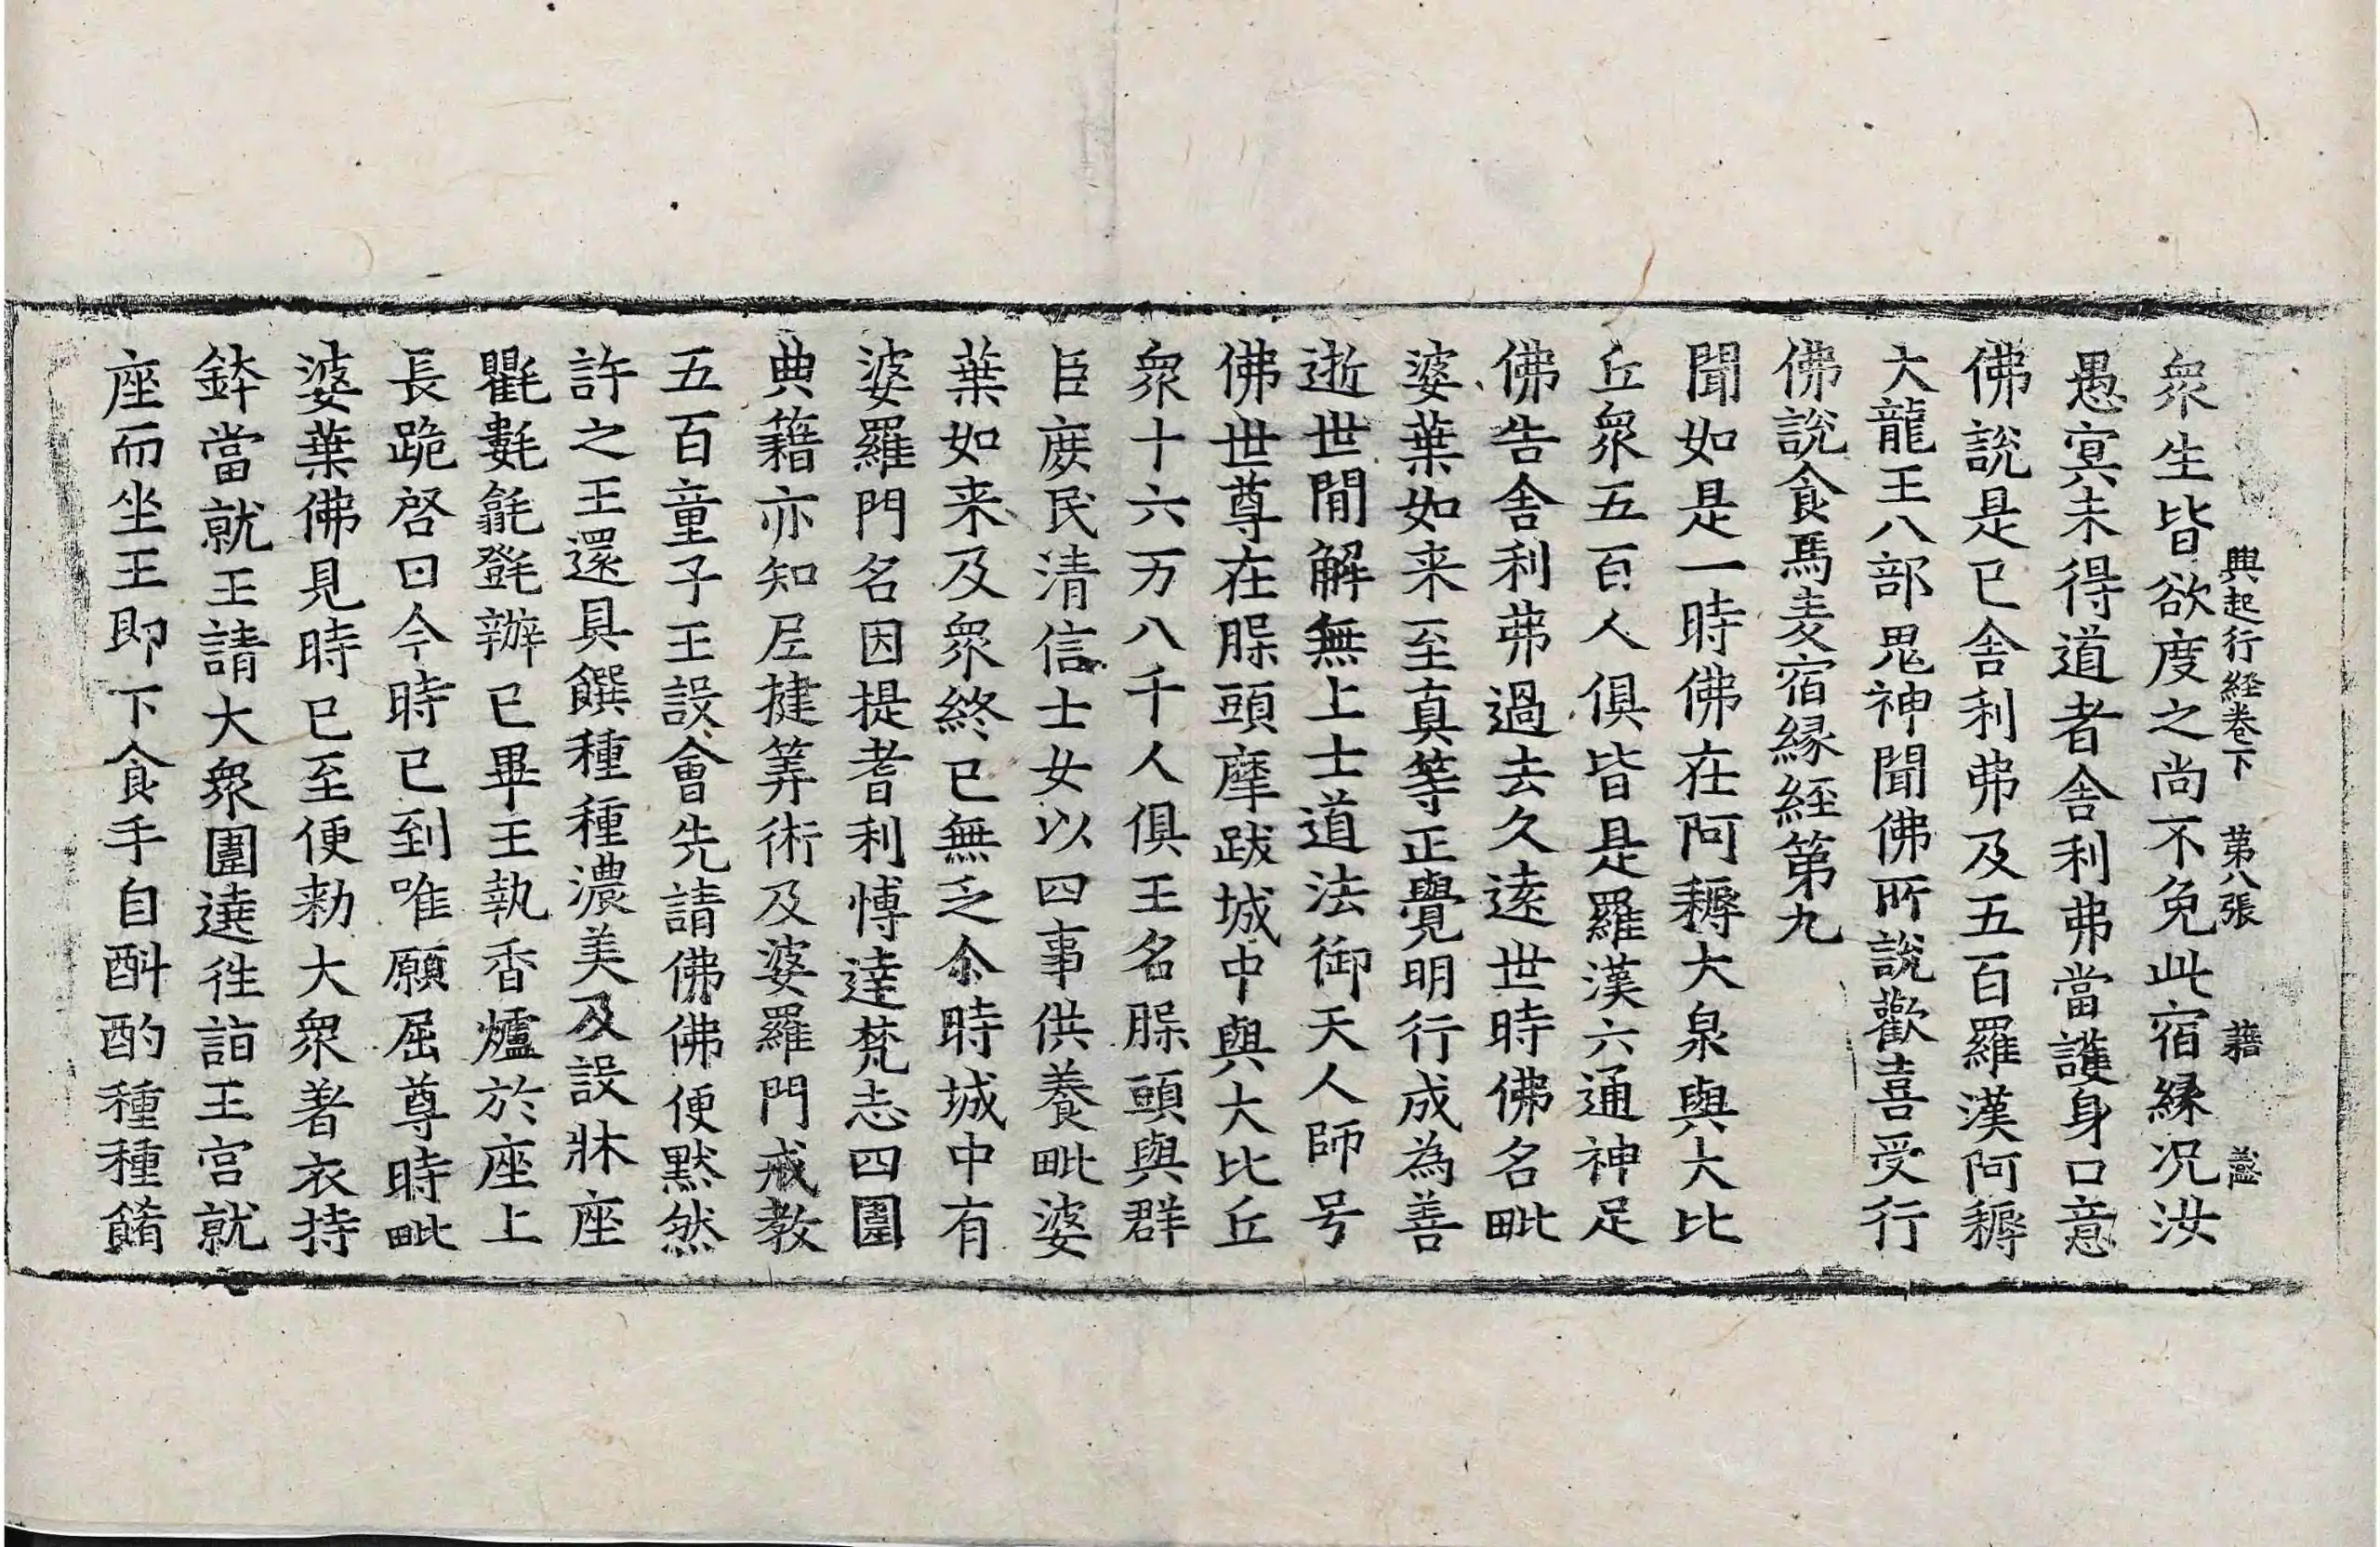 興起行経卷下 第八張 藉 盖
衆生皆欲度之尚不免此宿縁况汝
愚冥未得道者舎利弗當護身口意
佛說是已舎利弗及五百羅漢阿耨
大龍王八部鬼神聞佛所說歡喜受行
佛說食馬麦宿縁經第九
聞如是一時佛在阿耨大泉與大比
丘衆五百人俱皆是羅漢六通神足
佛告舎利弗過去久遠世時佛名毗
婆葉如来至真等正覺明行成為善
逝世閒解無上士道法御天人師号
佛世尊在脵頭摩跋城中與大比丘
衆十六万八千人俱王名脵頭與群
臣庶民清信士女以四事供養毗婆
葉如来及衆終已無乏尒時城中有
婆羅門名因提耆利愽達梵志四圍
典籍亦知𡰱揵筭術及婆羅門戒教
五百童子王設會先請佛佛便黙然
許之王還具饌種種濃美及設牀座
氍毹毾㲪辦已畢王執香爐於座上
長跪啓曰今時已到唯願屈尊時毗
婆葉佛見時已至便勑大衆著衣持
鉢當就王請大衆圍遶徃詣王宮就
座而坐王即下食手自酙酌種種餚